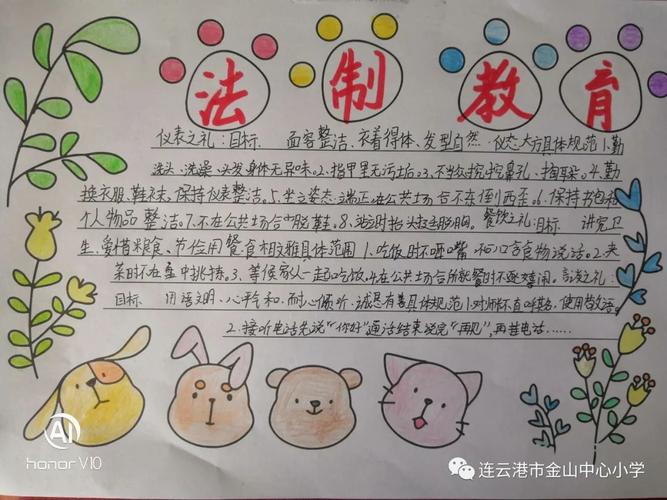 法制教育
仪表之礼:目标 面容整洁、衣着得体、发型自然、仪态大方具体规范1.勤
洗头、洗澡、头发身体无异味.2.指甲里无污垢.3.不当众挖鼻孔、掏耳朵.4.勤
换衣服、鞋袜、保持仪表整洁。5.坐立姿态端正在公共场合不东倒西歪。6.保持书包和
个人物品整洁。7.不在公共场合脱鞋。8.站立时抬头挺胸。餐饮之礼:目标 讲究卫
生、爱惜粮食、节俭用餐食相文雅具体范围1.吃饭时不咂嘴 和口含食物说话。2.夹
菜时不在盘中挑拣。3、等候家人一起吃饭.4.在公共场合就餐时不追逐嬉闹。言谈之礼:
目标 用语文明、心平气和、耐心倾听、诚恳有善具体规范1.对师长不直呼其名,使用敬语。
2.接听电话先说"你好"通话结束说完"再见",再挂电话……
AI
honor V10
连云港市金山中心小学